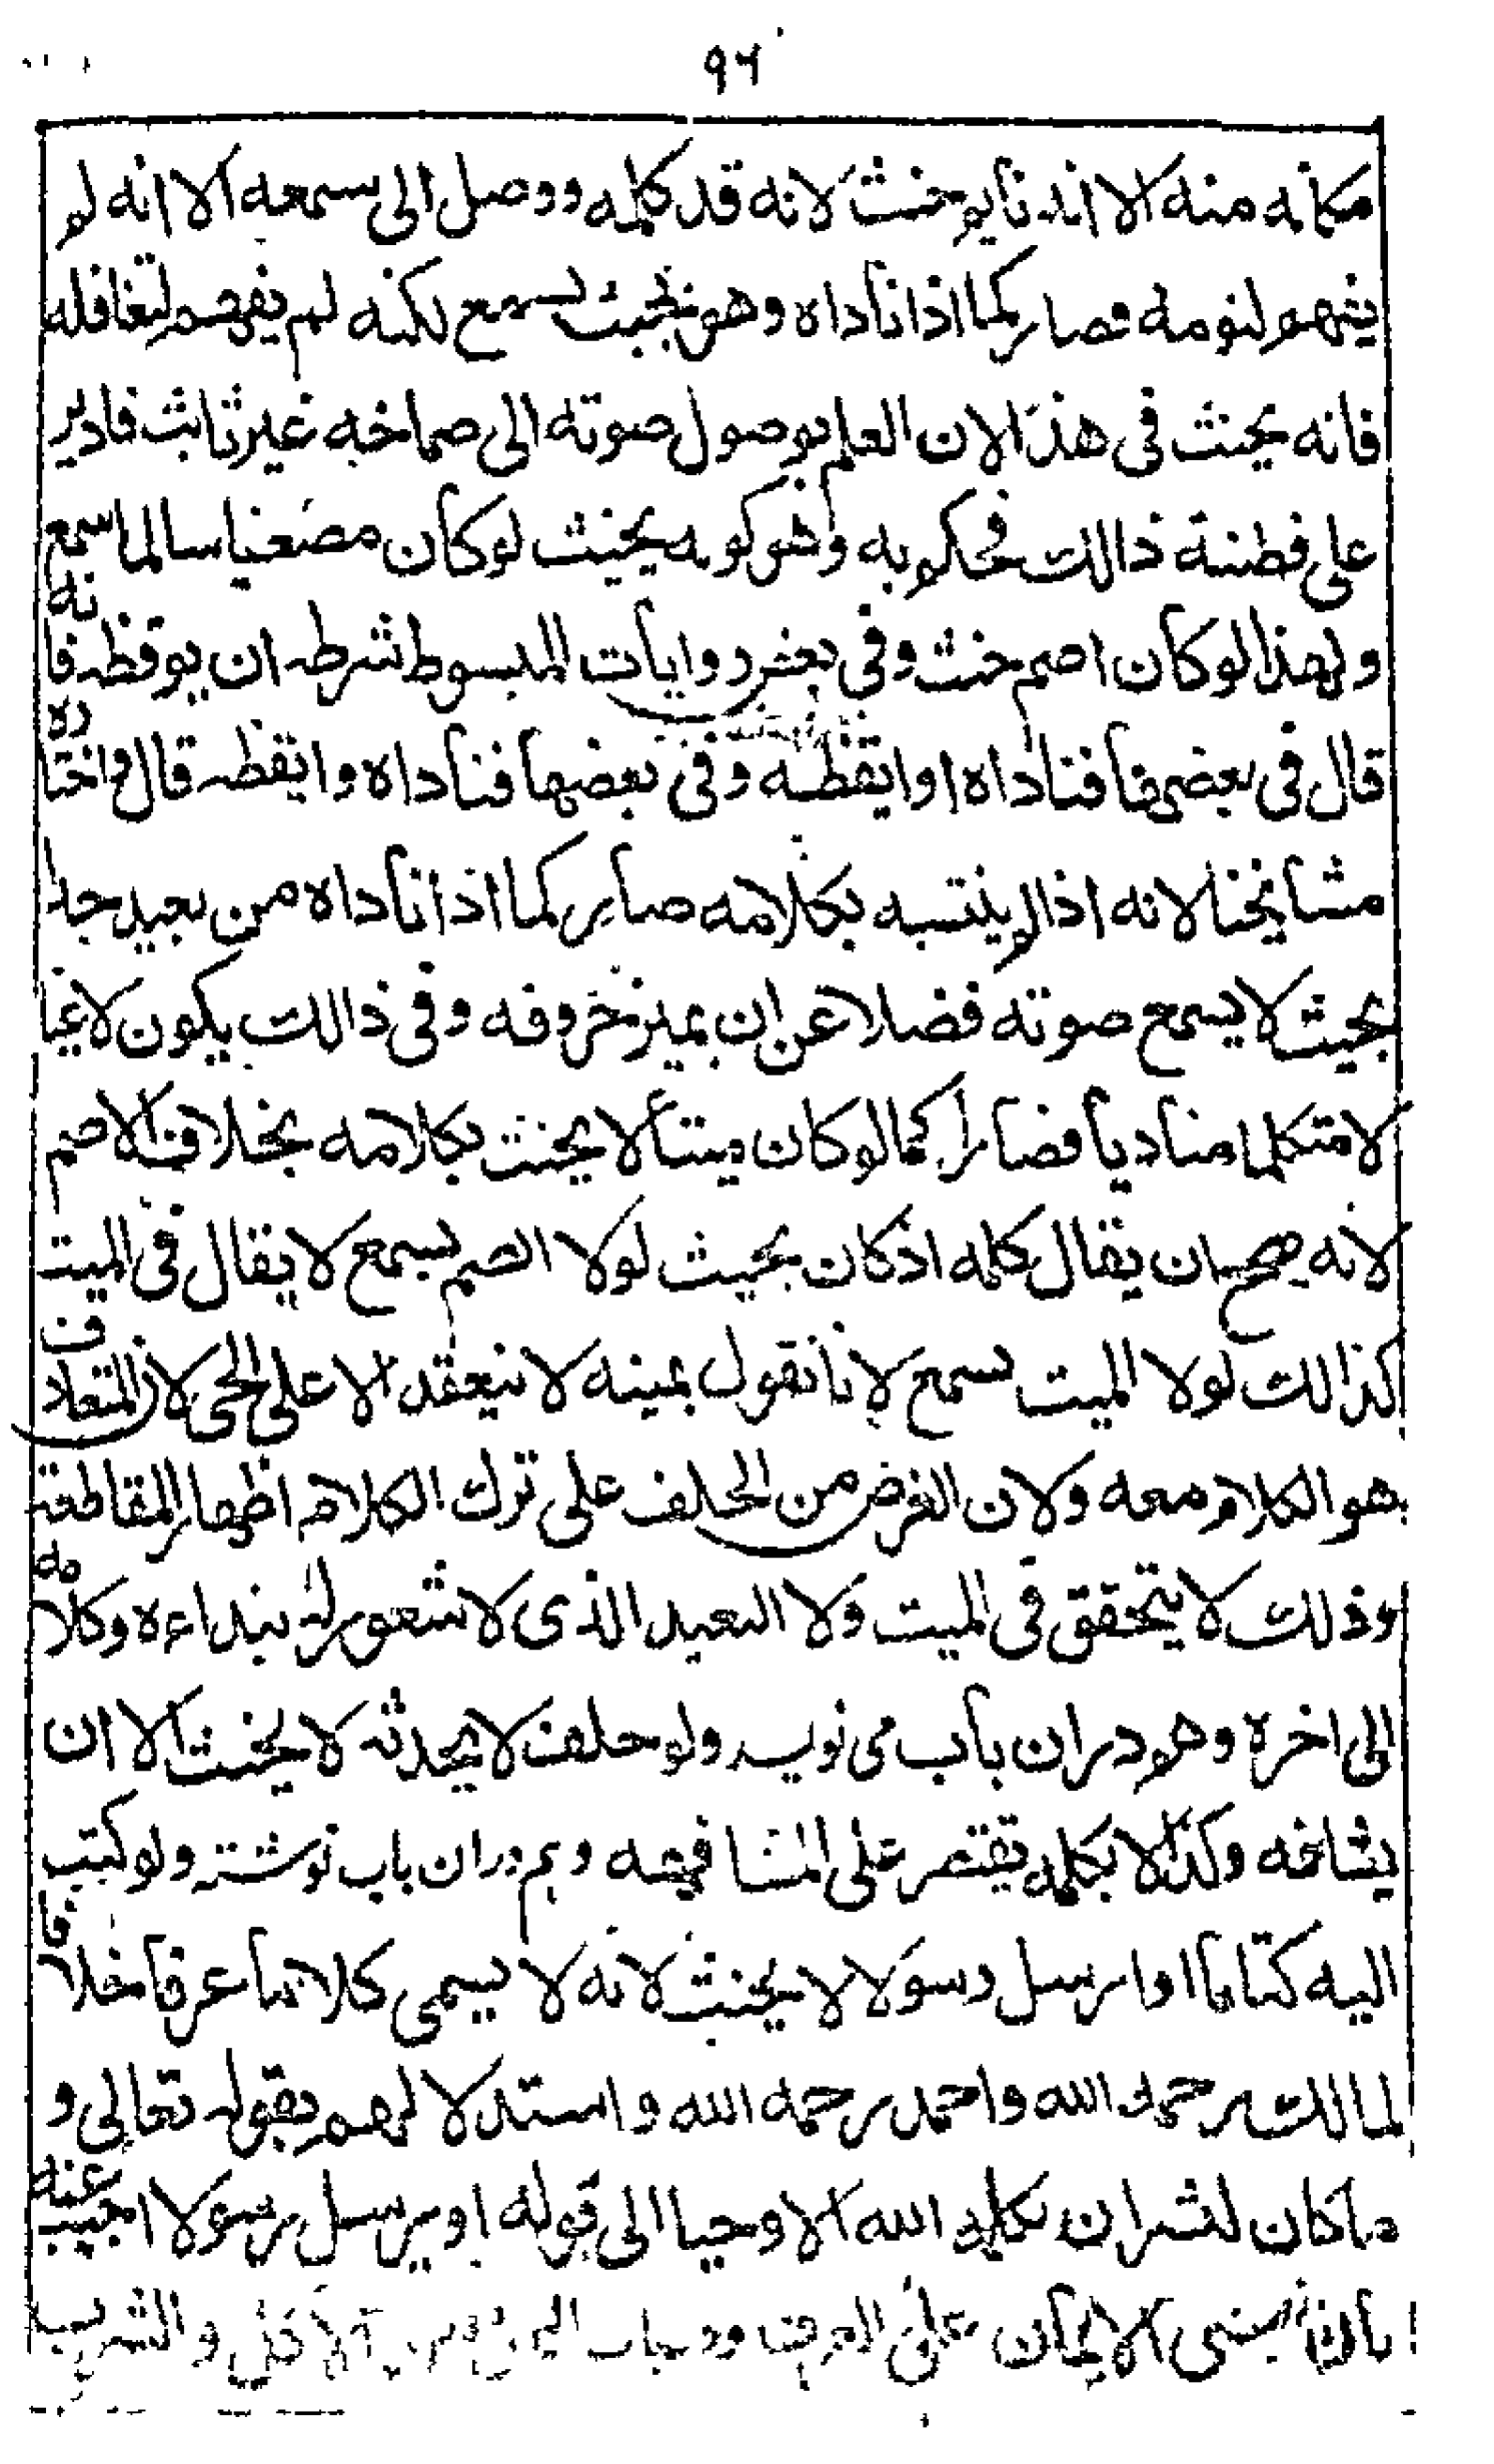 ٩٦
مكانه منه الا انه نايم حنث لانه قد كلمه ووصل الى سمعه الا انه لم
يفهم لنومه فصار كما اذا ناداه وهو بحيث يسمع لكنه لم يفهم لتغافله
فانه يحنث في هذا لان العلم بوصول صوته الى صماخه غير ثابت فادير
على فطنة ذالك فحكم به وهو كونه بحيث لو كان مصغيا سالما سمع
ولهذا لو كان اصم حنث وفي بعض روايات المبسوط شرط ان يوقظه فانه
قال في بعضها فناداه او ايقظه وفي بعضها فناداه وايقظه قال واختاره
مشايخنا لانه اذا لم ينتبه بكلامه صار كما اذا ناداه من بعيد جدا
بحيث لا يسمع صوته فضلا عن ان يميز حروفه وفي ذالك يكون لاغيا
لا متكلما مناديا فصار كما لو كان ميتا لا يحنث بكلامه بخلاف الاصم
لانه يصح ان يقال كلمه اذ كان بحيث لولا الصم يسمع لا يقال في الميت
كذالك لولا الميت يسمع لانا نقول يمينه لا ينعقد الا على الحى لان المتعارف
هو الكلام معه ولان الغرض من الحلف على ترك الكلام اظهار المقاطعة
وذلك لا يتحقق في الميت ولا البعيد الذى لا شعور له بنداءه وكلامه
الى اخره وهم دران باب مى نويسد ولو حلف لا يحدثه لا يحنث الا ان
يشافهه وكذا لا يكلمه يقتصر على المشافهه وهم دران باب نوشته ولو كتب
اليه كتابا او ارسل رسولا لا يحنث لانه لا يسمى كلاما عرفا خلافا
لمالك رحمه الله واحمد رحمه الله واستدلالهم بقوله تعالى و
ما كان لبشر ان يكلمه الله الا وحيا الى قوله او يرسل رسولا اجيب عنه
بان مبنى الايمان على العرف والشرب